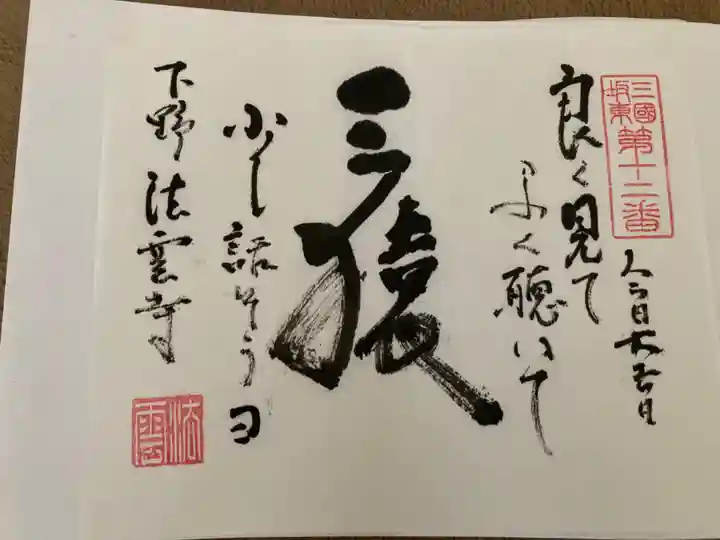 三國
坂東
第十二番
今日大吉日
良く見て
よく聴いて
三猿
少し話そうヨ
下野 法雲寺
法雲